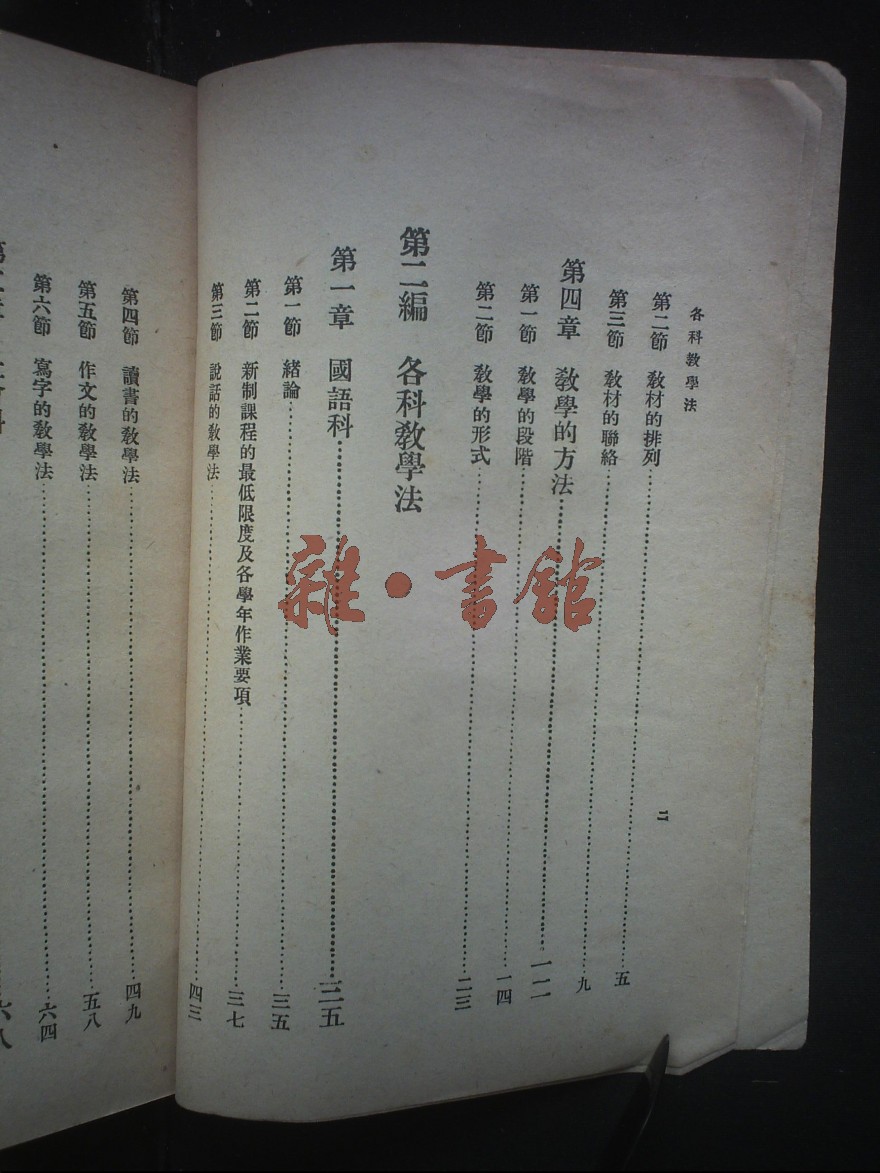 各科敎學法
二
第二節 敎材的排列……五
第三節 敎材的聯絡……九
第四章 敎學的方法……一二
第一節 敎學的段階……一四
第二節 敎學的形式……二三
第二編 各科敎學法
第一章 國語科……三五
第一節 緒論……三五
第二節 新制課程的最低限度及各學年作業要項……三七
第三節 說話的敎學法……四三
第四節 讀書的敎學法……四九
第五節 作文的敎學法……五八
第六節 寫字的敎學法……六四
雜·書館